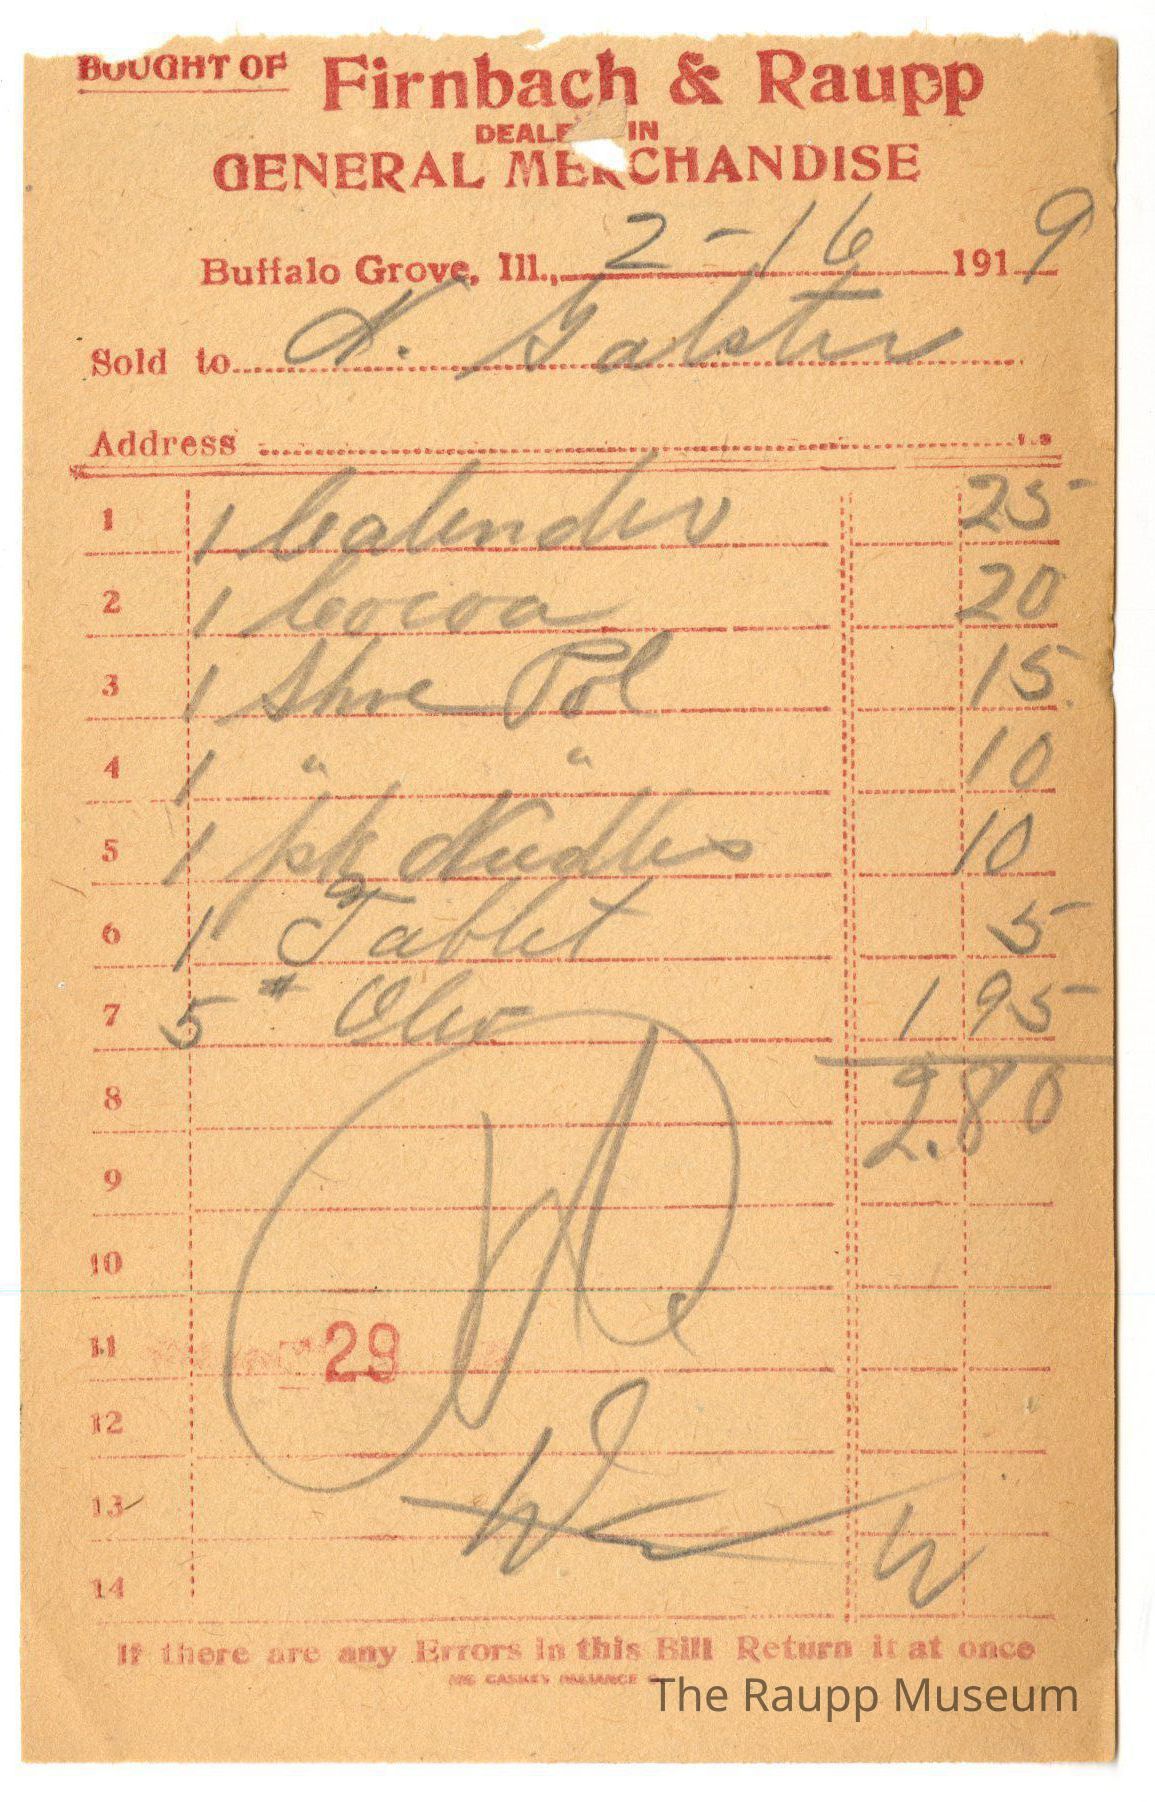 BOUGHT OF Firnbach & Raupp
DEALE IN
GENERAL MERCHANDISE
Buffalo Grove, Ill., 2-16 1919
Sold to A. Galster
Address
1 1 Calender 25
2 1 Cocoa 20
3 1 Shoe Pol 15
4 1 " " 10
5 1 pk Nudles 10
6 1 Tablet 5
7 5 # Oleo 1 95
8 2.80
9
10
11 29
12
13
14
If there are any Errors in this Bill Return it at once
The Raupp Museum